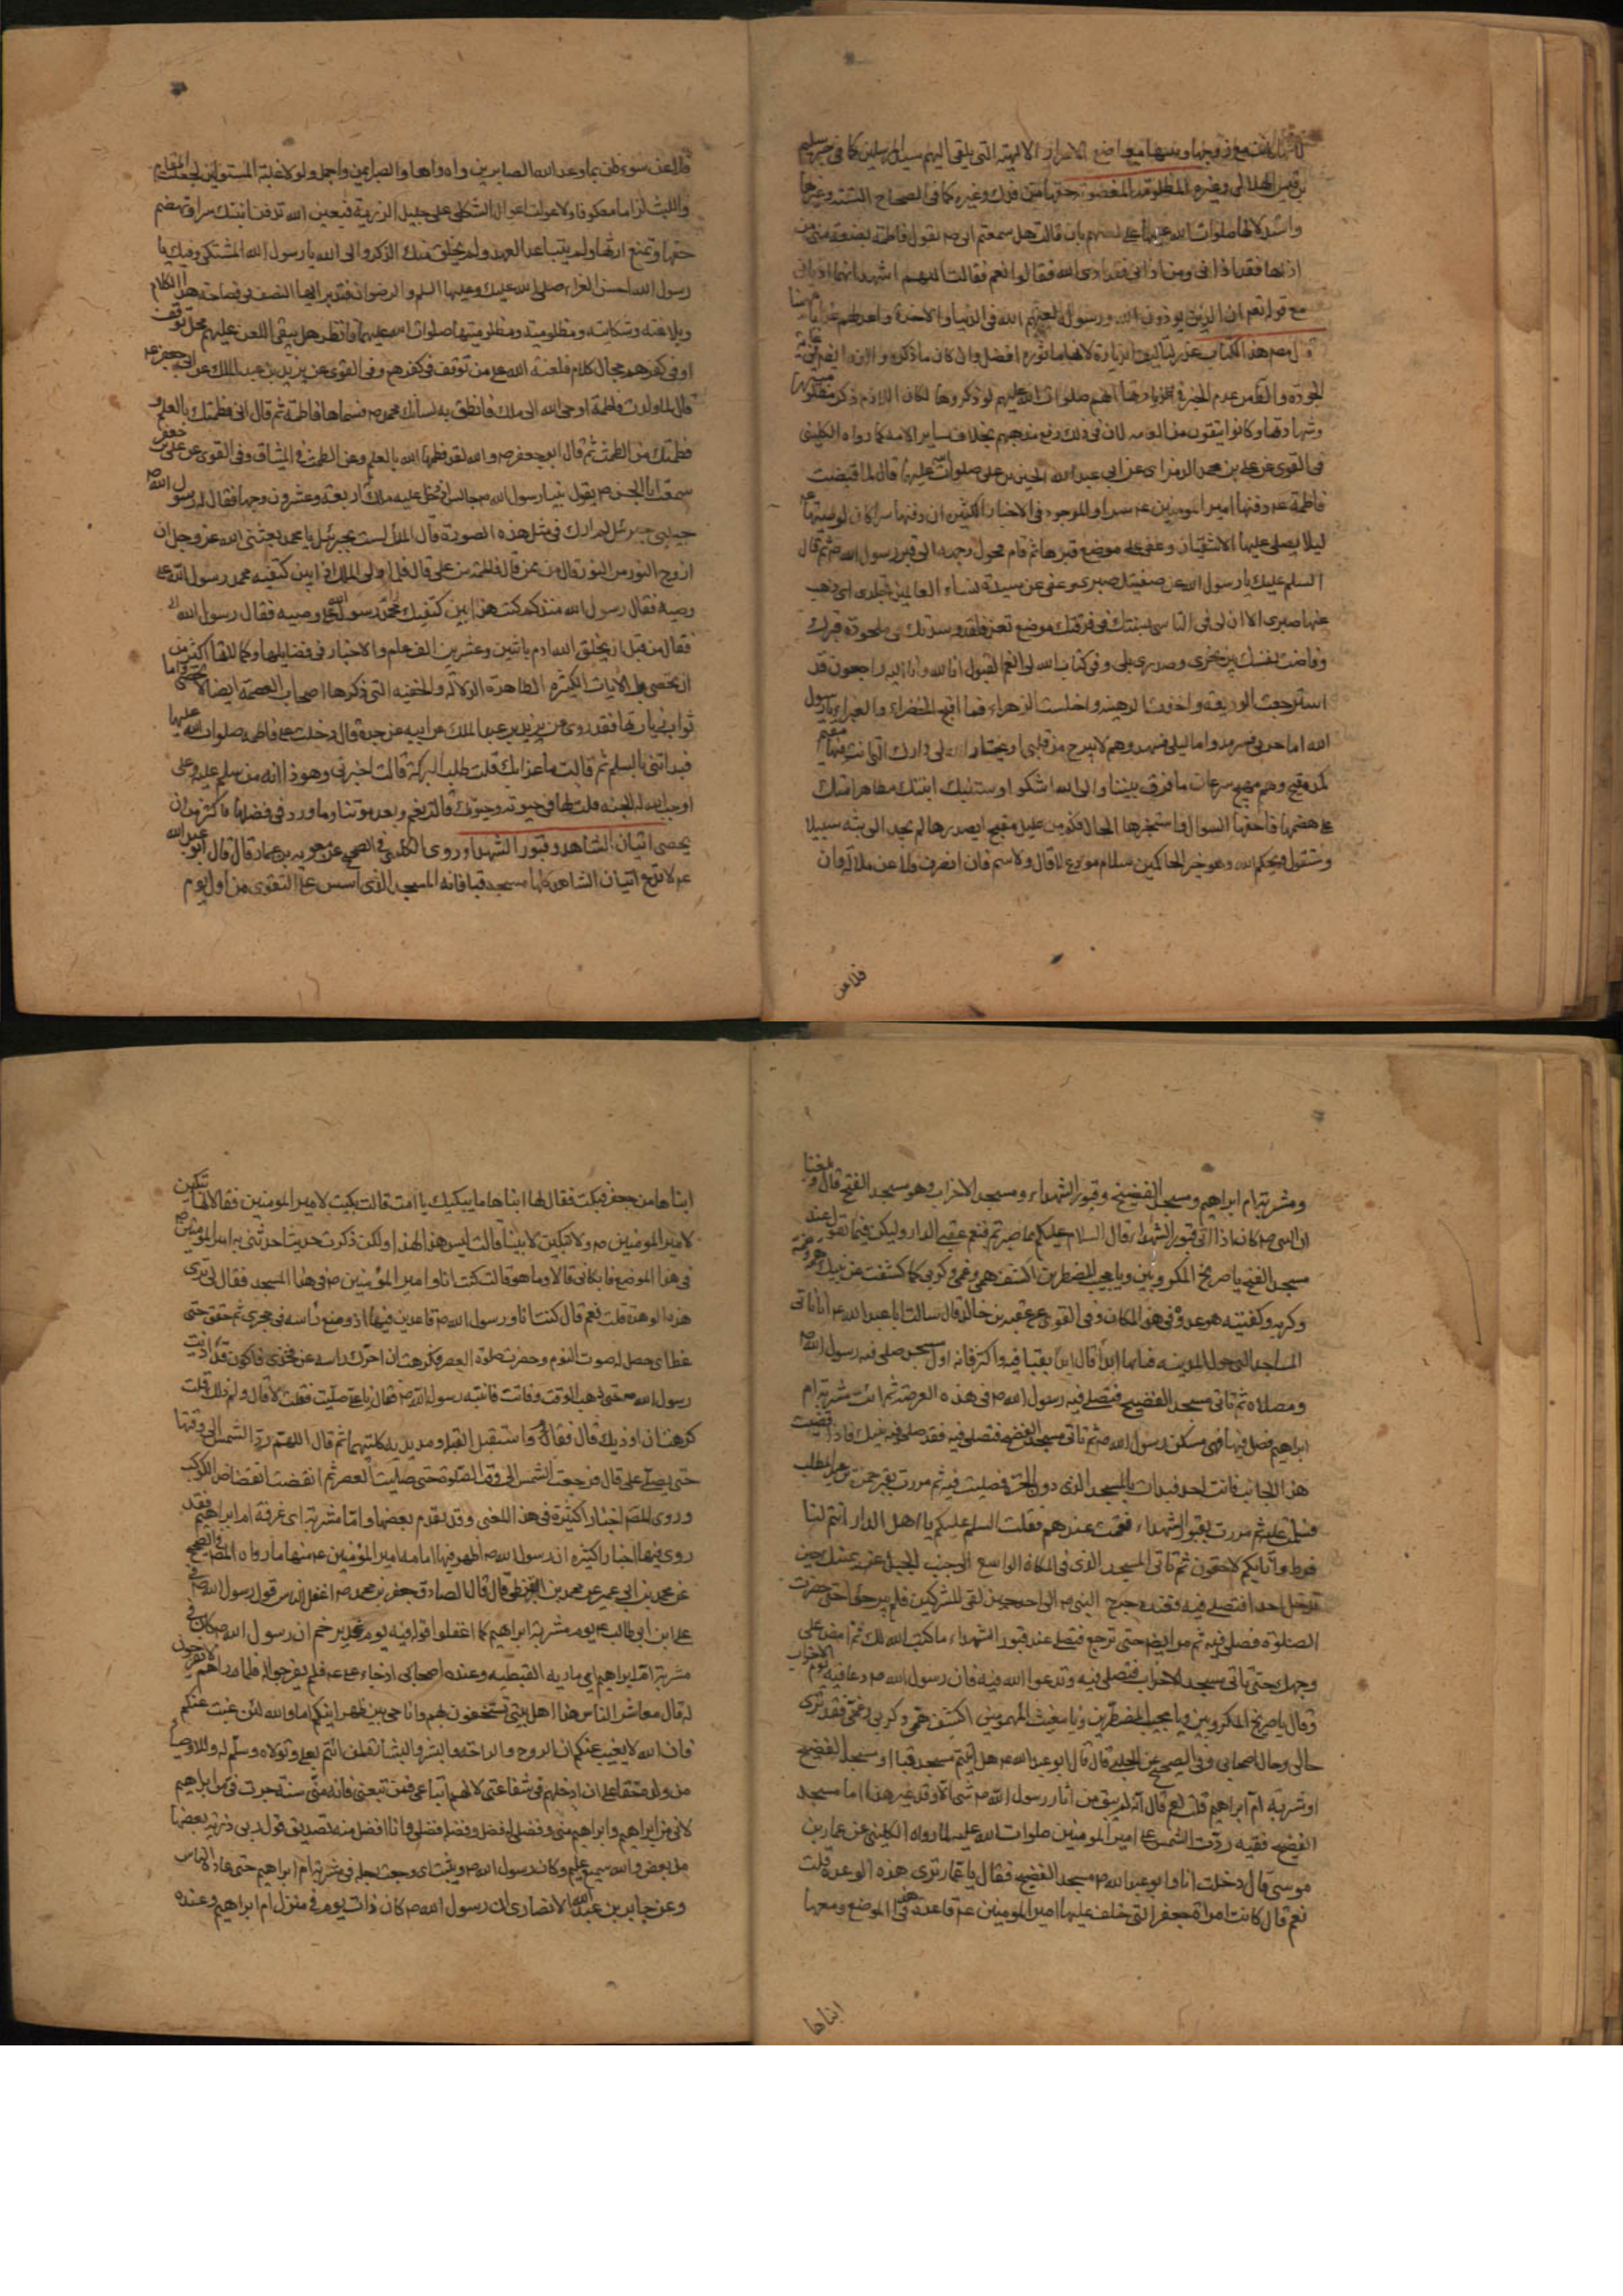 بن قيس الهلالي وغيره المظلومة المغصوبة حقها من فدك وغيره كما في الصحاح الستة وغيرها
واستدلالها صلوات الله عليها عليهم بان قالت هل سمعتم ابي ص يقول فاطمة بضعة مني من
اذاها فقد اذاني ومن اذاني فقد اذى الله فقالوا نعم فقالت اللهم اشهد انهما اذياني
مع قوله تعالى ان الذين يوذون الله ورسوله لعنهم الله في الدنيا والاخرة واعد لهم عذابا مهينا
وشهادتها وكانوا يتقون من العامه لان في ذلك رفع مذهبهم بخلاف ساير الائمة كما رواه الكليني
في القوى عن علي بن محمد الهرمزاني عن ابي عبد الله الحسين بن علي صلوات الله عليهما قال لما قبضت
فاطمة ع دفنها امير المومنين ع سرا والموجود في الاخبار الكثيرة ان دفنها سرا كان لوصيتها
ليلا يصلي عليها الاشقيان وعفى على موضع قبرها ثم قام فحول وجهه الى قبر رسول الله ص ثم قال
السلم عليك يا رسول الله عن صفيتك صبري وعفى عن سيدة نساء العالمين تجلدي اي ذهب
عنها صبري الا ان لي في التاسي بسنتك في فرقتك موضع تعز فلقد وسدتك في ملحودة قبرك
وفاضت نفسك بين نحري وصدري بلى وفي كتاب الله لي انعم القبول انا لله وانا اليه راجعون قد
استرجعت الوديعه واخذت الرهينه واخلست الزهراء فما اقبح الخضراء والغبراء يا رسول
الله اما حزني فسرمد واما ليلي فمسهد وهم لا يبرح من قلبي او يختار الله لي دارك التي انت فيها مقيم
كمد مقيح وهم مهيج سرعان ما فرق بيننا والى الله اشكو وستنبئك ابنتك بتظاهر امتك
على هضمها فاحفها السوال واستخبرها الحال فكم من غليل معتلج بصدرها لم يجد الى بثه سبيلا
وستقول ويحكم الله وهو خير الحاكمين سلام مودع لا قال ولا سئم فان انصرف فلا عن ملالة وان
فلا عن
فلا عن سوء ظن بما وعد الله الصابرين واه واها والصبر ايمن واجمل ولولا غلبة المستولين لجعلت المقام
واللبث لزاما معكوفا ولاعولت اعوال الثكلى على جليل الرزية فبعين الله تدفن ابنتك سرا وتهضم
حقها وتمنع ارثها ولم يتباعد العهد ولم يخلق منك الذكر والى الله يا رسول الله المشتكى وفيك يا
رسول الله احسن العزاء صلى الله عليك وعليها السلم والرضوان فتدبر ايها المنصف في فصاحة هذا الكلام
وبلاغته وشكايته ومظلوميته ومظلوميتها صلوات الله عليهما وانظر هل يبقى اللعن عليهم محل توقف
او في كفرهم مجال كلام فلعنة الله على من توقف في كفرهم وفي القوى عن يزيد بن عبد الملك عن ابي جعفر ع
قال لما ولدت فاطمة اوحى الله الى ملك فانطق به لسان محمد ص فسماها فاطمة ثم قال اني فطمتك بالعلم و
فطمتك من الطمث ثم قال ابو جعفر ص والله لقد فطمها الله بالعلم وعن الطمث في الميثاق وفي القوى عن علي بن جعفر
سمعت ابا الحسن ص يقول بينا رسول الله ص جالس اذ دخل عليه ملك له اربعة وعشرون وجها فقال له رسول الله ص
حبيبي جبرئيل لم ارك في مثل هذه الصورة قال الملك لست بجبرئيل يا محمد بعثني الله عز وجل ان
ازوج النور من النور قال من ممن قال فاطمة من علي قال فلما ولى الملك اذا بين كتفيه محمد رسول الله علي
وصيه فقال رسول الله منذ كم كتب هذا بين كتفيك محمد رسول الله علي وصيه فقال رسول الله
فقال من قبل ان يخلق الله ادم باثنين وعشرين الف عام والاخبار في فضايلها وكمالاتها اكثر من
ان تحصى
ثواب زيارتها فقد روى عن يزيد بن عبد الملك عن ابيه عن جده قال دخلت على فاطمة صلوات الله عليها
فبداتني بالسلم ثم قالت ما غدا بك قلت طلب البركة قالت اخبرني وهو ذا انه من سلم عليه وعلي
اوجب الله له الجنه قلت لها في حيوته وحيوتك قالت نعم وبعد موتنا وما ورد في فضلها فاكثر من ان
يحصى اتيان المشاهد وقبور الشهدا وروى الكليني في الصحيح عن معوية بن عمار قال قال ابو عبد الله
ع لا تدع اتيان المشاهد كلها مسجد قبا فانه المسجد الذي اسس على التقوى من اول يوم
ومشربة ام ابراهيم ومسجد الفضيخ وقبور الشهداء ومسجد الاحزاب وهو مسجد الفتح قال وبلغنا
ان النبي ص كان اذا اتى قبور الشهداء قال السلام عليكم بما صبرتم فنعم عقبى الدار وليكن فيما تقول عند
مسجد الفتح يا صريخ المكروبين ويا مجيب المضطرين اكشف همي وغمي وكربي كما كشفت عن نبيك همه وغمه
وكربه وكفيته هول عدوه في هذا المكان وفي القوى عن عقبة بن خالد قال سالت ابا عبد الله ع انا ناتي
المساجد التي حول المدينه فبايها ابدا قال ابدا بقبا فصل فيه واكثر فانه اول مسجد صلى فيه رسول الله ص
ومصلاه ثم تاتي مسجد الفضيخ فتصلي فيه رسول الله ص في هذه العرصة ثم ائت مشربة ام
ابراهيم فصل فيها وهي مسكن رسول الله ص ثم تاتي مسجد الفضيخ فتصلي فيه فقد صلى فيه نبيك فاذا قضيت
هذا الجانب فائت احد فبدات بالمسجد الذي دون الحرة فصليت فيه ثم مررت بقبر حمزة بن عبد المطلب
فسلمت عليه ثم مررت بقبور الشهداء فقمت عندهم فقلت السلم عليكم يا اهل الدار انتم لنا
فرط وانا بكم لاحقون ثم تاتي المسجد الذي في المكان الواسع الى جنب الجبل عن يمينك حين
تدخل احدا فتصلي فيه فعنده خرج النبي ص الى احد حين لقى المشركين فلم يبرحوا حتى حضرت
الصلوة فصلى فيه ثم مر ايضا حتى ترجع فتصلي عند قبور الشهداء ما كتب الله لك ثم امض على
وجهك حتى تاتي مسجد الاحزاب فتصلي فيه وتدعوا الله فيه فان رسول الله ص دعا فيه يوم الاحزاب
وقال يا صريخ المكروبين ويا مجيب المضطرين ويا مغيث المهمومين اكشف همي وكربي وغمي فقد ترى
حالي وحال اصحابي وفي الصحيح عن الحلبي قال قال ابو عبد الله ع هل اتيتم مسجد قبا او مسجد الفضيخ
او مشربة ام ابراهيم قلت نعم قال انه لم يبق من اثار رسول الله ص شئ الا وقد غير هذا اما مسجد
الفضيخ ففيه ردت الشمس على امير المومنين صلوات الله عليه لما رواه الكليني عن عمار بن
موسى قال دخلت انا وابو عبد الله ص مسجد الفضيخ فقال يا عمار ترى هذه الوهدة قلت
نعم قال كانت امراة جعفر التي خلف عليها امير المومنين ع قاعدة في هذا الموضع ومعها
ابناها
ابناها من جعفر فبكت فقال لها ابناها ما يبكيك يا امت قالت بكيت لامير المومنين فقالا لها تبكين
لامير المومنين ص ولا تبكين لابينا قالت ليس هذا لهذا ولكن ذكرت حديثا حدثني به امير المومنين ص
في هذا الموضع فابكاني قالا وما هو قالت كنت انا وامير المؤمنين ص في هذا المسجد فقال لي ترى
هذه الوهدة قلت نعم قال كنت انا ورسول الله ص قاعدين فيها اذ وضع رأسه في حجري ثم خفق حتى
غط اي حصل له صوت النوم وحضرت صلوة العصر فكرهت ان احرك راسه عن فخذي فاكون قد اذيت
رسول الله ص حتى ذهب الوقت وفاتت فانتبه رسول الله ص فقال يا علي صليت فقلت لا قال ولم ذلك قلت
كرهت ان اوذيك قال فقام واستقبل القبلة ومد يديه كلتيهما ثم قال اللهم رد الشمس الى وقتها
حتى يصلي علي قال فرجعت الشمس الى وقت الصلوة حتى صليت العصر ثم انقضت انقضاض الكوكب
وروى المصنف اخبارا كثيرة في هذا المعنى وقد تقدم بعضها واما مشربة اي غرفة ام ابراهيم فقد
روى فيها اخبارا كثيرة ان رسول الله ص اظهر فيها امامة امير المؤمنين ع منها ما رواه المصنف في الصحيح
عن محمد بن ابي عمير عن محمد بن القرظي قال قال الصادق جعفر بن محمد ص اغفل الناس قول رسول الله ص في
علي ابن ابي طالب ع يوم مشربة ابراهيم كما اغفلوا قوله فيه يوم غدير خم ان رسول الله ص كان في
مشربة ام ابراهيم اي مارية القبطيه وعنده اصحابه اذ جاء علي ع فلم يفرجوا له فلما راهم لا يفرجون
له قال معاشر الناس هذا اهل بيتي تستخفون بهم وانا حي بين ظهرانيكم اما والله لئن غبت عنكم
فان الله لا يغيب عنكم ان الروح والراحة والبشر والبشارة لمن ائتم بعلي وتولاه وسلم له وللاوصيا
من ولده حقا علي ان ادخلهم في شفاعتي لانهم اتباعي فمن تبعني فانه مني سنة جرت في من ابراهيم
لاني من ابراهيم وابراهيم مني وفضلي له فضل وفضله فضلي وانا افضل منه تصديق قول ربي ذرية بعضها
من بعض والله سميع عليم وكان رسول الله ص وثئت رجله في مشربة ام ابراهيم حتى عاده الناس
وعن جابر بن عبد الله الانصاري ان رسول الله ص كان ذات يوم في منزل ام ابراهيم وعنده